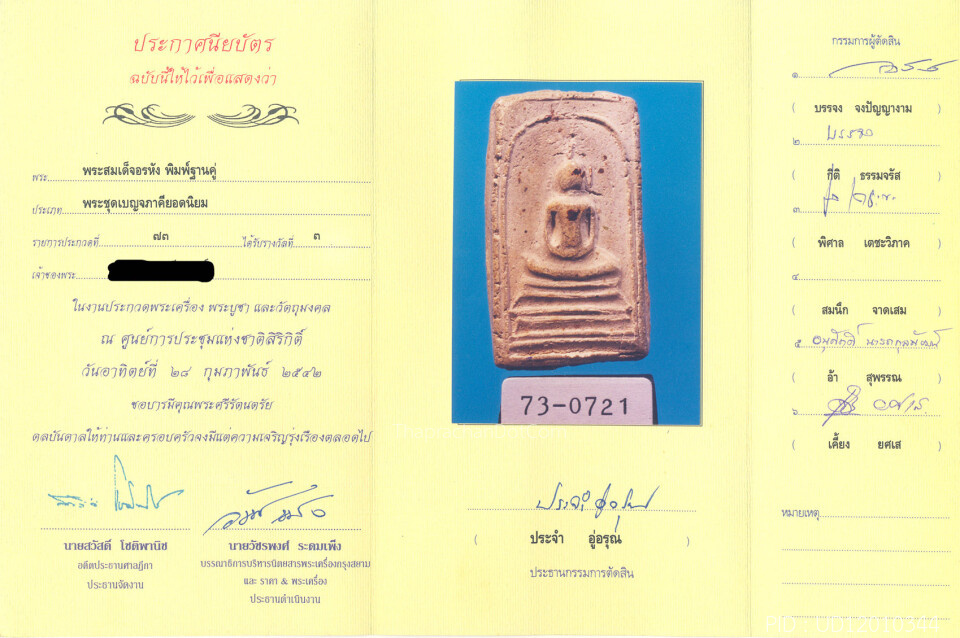 ประกาศนียบัตร
ฉบับนี้ให้ไว้เพื่อแสดงว่า
พระ พระสมเด็จอรหัง พิมพ์ฐานคู่
ประเภท พระชุดเบญจภาคียอดนิยม
รายการประกวดที่ ๗๓ ได้รับรางวัลที่ ๓
เจ้าของพระ
ในงานประกวดพระเครื่อง พระบูชา และวัตถุมงคล
ณ ศูนย์การประชุมแห่งชาติสิริกิติ์
วันอาทิตย์ที่ ๒๘ กุมภาพันธ์ ๒๕๔๒
ขอบารมีคุณพระศรีรัตนตรัย
ดลบันดาลให้ท่านและครอบครัวจงมีแต่ความเจริญรุ่งเรืองตลอดไป
นายสวัสดิ์ โชติพานิช
อดีตประธานศาลฎีกา
ประธานจัดงาน
นายวัชรพงศ์ ระดมเพ็ง
บรรณาธิการบริหารนิตยสารพระเครื่องกรุงสยาม
และ ราคา & พระเครื่อง
ประธานดำเนินงาน
73-0721
ประจำ อู่อรุณ
( ประจำ อู่อรุณ )
ประธานกรรมการตัดสิน
กรรมการผู้ตัดสิน
๑
( บรรจง จงปัญญางาม )
๒ บรรจง
( กิติ ธรรมจรัส )
๓
( พิศาล เตชะวิภาค )
๔
( สมนึก จาดเสม )
๕
( อ้า สุพรรณ )
๖
( เคี้ยง ยศเส )
หมายเหตุ